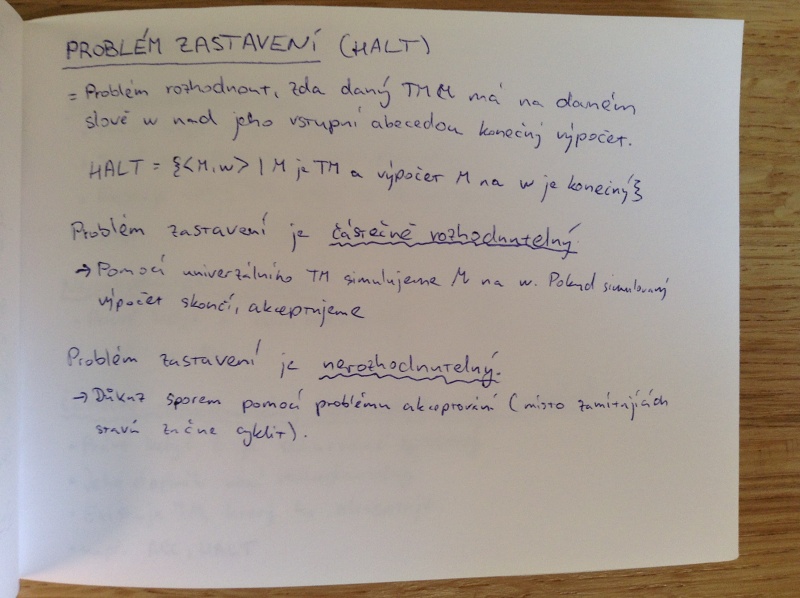 PROBLÉM ZASTAVENÍ (HALT)
= Problém rozhodnout, zda daný TM M má na daném
slově w nad jeho vstupní abecedou konečný výpočet.
HALT = {<M,w> | M je TM a výpočet M na w je konečný}
Problém zastavení je částečně rozhodnutelný.
→ Pomocí univerzálního TM simulujeme M na w. Pokud simulovaný
výpočet skončí, akceptujeme
Problém zastavení je nerozhodnutelný.
→ Důkaz sporem pomocí problému akceptování (místo zamítajících
stavů začne cyklit).